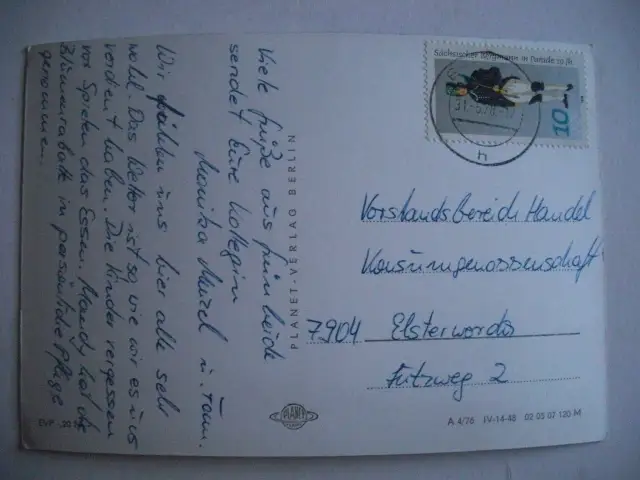 Viele Grüße aus Grünheide
sendet Eure Kollegin
Monika u. Fam.
Wir fühlen uns hier alle sehr
wohl. Das Wetter ist so, wie wir es uns
verdient haben. Die Kinder vergessen
vor Spielen das Essen. Mandy hat die
Blumenrabatte in persönliche Pflege
genommen.
EVP
PLANET-VERLAG BERLIN
Sächsischer Bergmann in Parade 19. Jh.
10
Vorstandsbereich Handel
Konsumgenossenschaft
7904 Elsterwerda
2
PLANET
A 4/76 IV-14-48 02 05 07 120 M